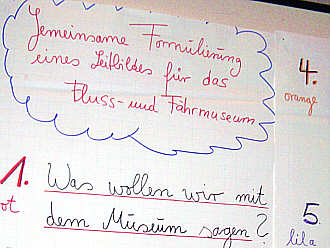 Gemeinsame Formulierung
eines Leitbildes für das
Fluss- und Fährmuseum
4.
orange
1. Was wollen wir mit
dem Museum sagen?
ot
5.
lila